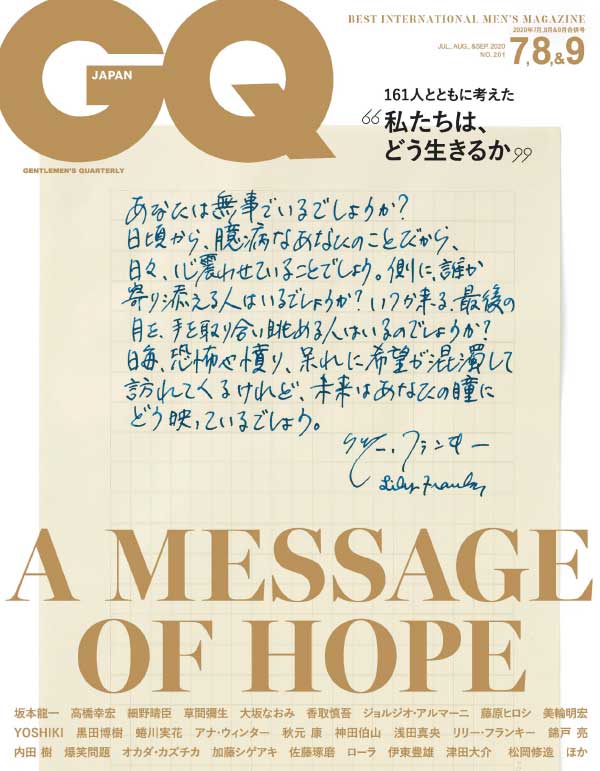 BEST INTERNATIONAL MEN'S MAGAZINE
2020年7月,8月&9月合併号
JUL., AUG., &SEP. 2020
NO. 201
7,8,&9
GQ
JAPAN
GENTLEMEN'S QUARTERLY
161人とともに考えた
“私たちは、
どう生きるか”
あなたは無事でいるでしょうか?
日頃から、臆病なあなたのことだから、
日々、心震わせていることでしょう。側に、誰か
寄り添える人はいるでしょうか? いつか来る、最後の
月を、手を取り合い眺める人はいるのでしょうか?
日毎、恐怖や憤り、呆れに希望が混濁して
訪れてくるけれど、未来はあなたの瞳に
どう映っているでしょう。
リリー・フランキー
Lily Franky
A MESSAGE
OF HOPE
坂本龍一 高橋幸宏 細野晴臣 草間彌生 大坂なおみ 香取慎吾 ジョルジオ・アルマーニ 藤原ヒロシ 美輪明宏
YOSHIKI 黒田博樹 蜷川実花 アナ・ウィンター 秋元 康 神田伯山 浅田真央 リリー・フランキー 錦戸 亮
内田 樹 爆笑問題 オカダ・カズチカ 加藤シゲアキ 佐藤琢磨 ローラ 伊東豊雄 津田大介 松岡修造 ほか